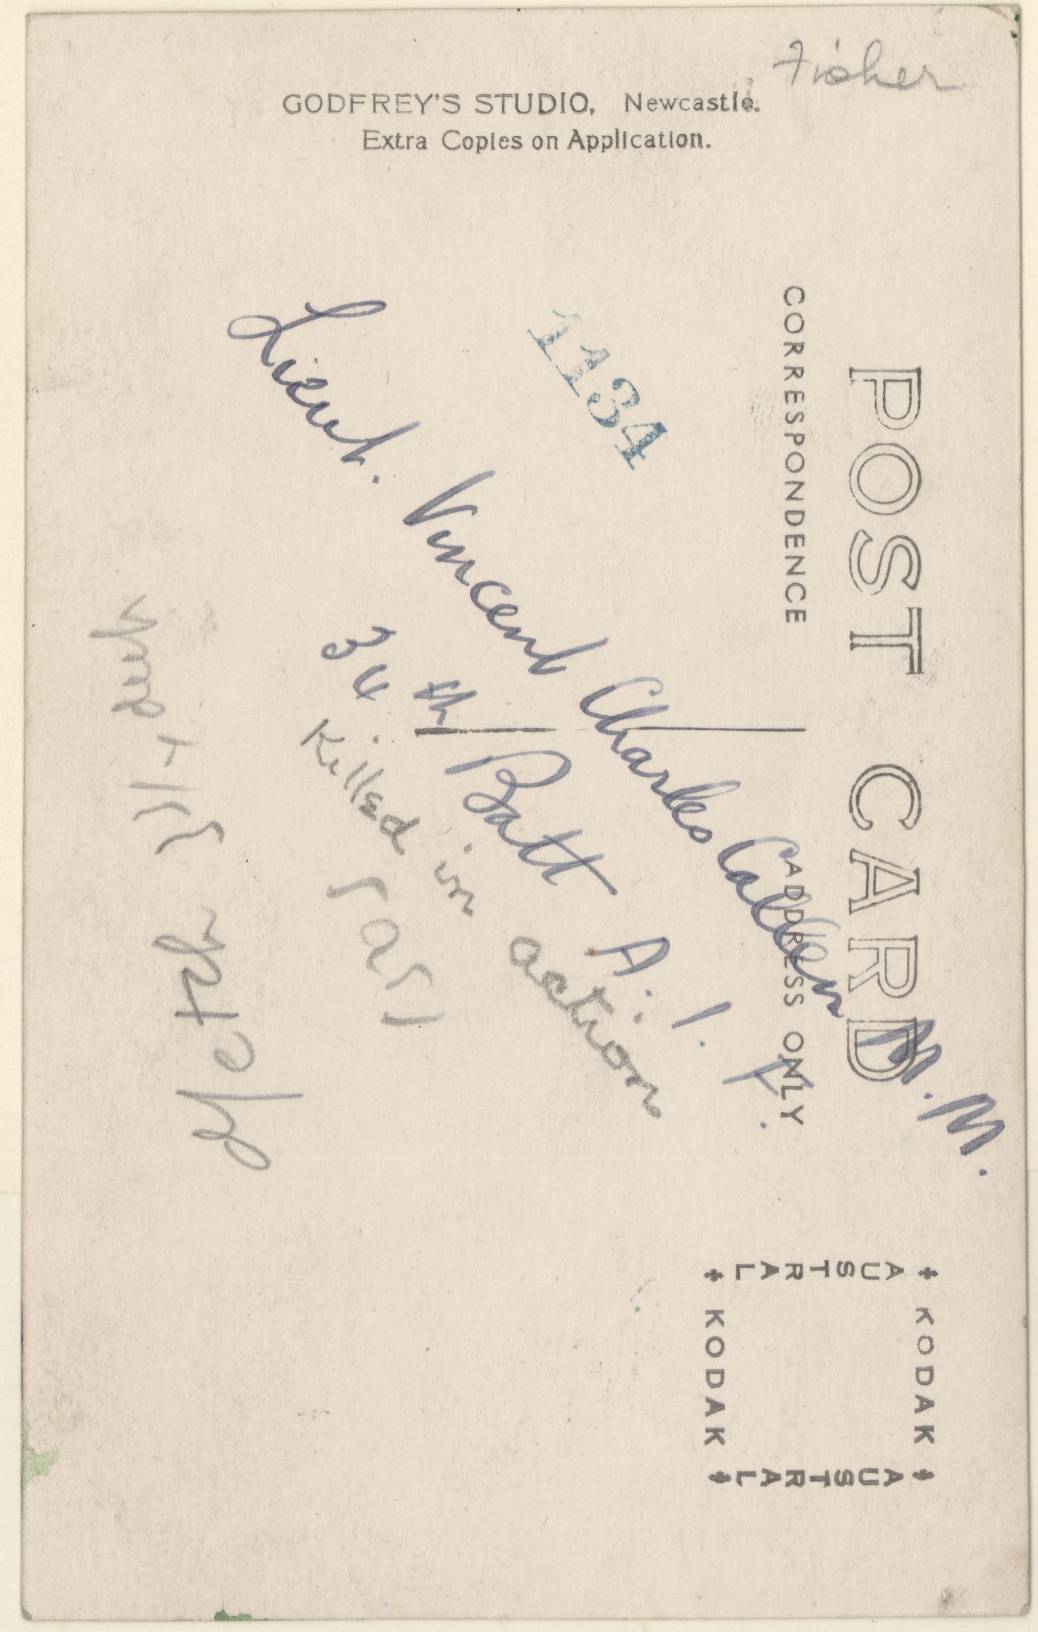 Fisher
GODFREY'S STUDIO, Newcastle.
Extra Copies on Application.
POST CARD
CORRESPONDENCE
ADDRESS ONLY
1134
Lieut. Vincent Charles Callen M.M.
34th Batt A.I.F.
Killed in action
AUSTRAL
KODAK
AUSTRAL
KODAK